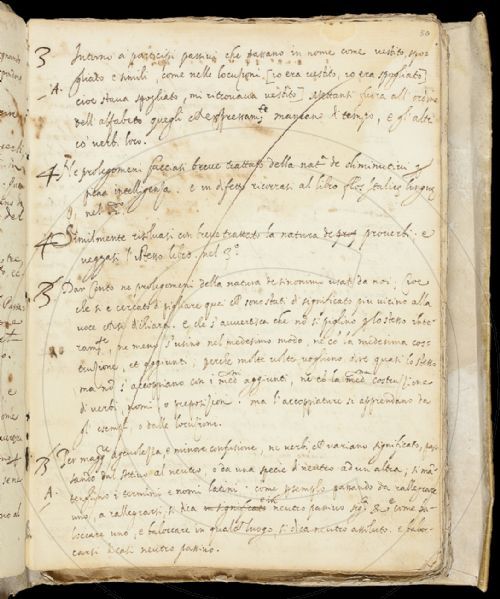 30
3 Intorno a participi passivi che passano in nome come vestito, spo-
A. gliato e simili, come nelle locuzioni. [io era vestito, io era spogliato]
cioè stava spogliato, mi ritrovava vestito] mettansi fuora all'ordine
dell'alfabeto quegli ch'espressam.te mancan di tempo, e gl'altri
co' verbi loro.
4 Ne prolegomeni facciasi breve trattato della nat.a de diminutivi
piena intelligenza. e in difetto ricorrasi al libro flos Italicę linguę
nel
4 Similmente risolvasi con breve trattato la natura de proverbi. e
veggasi l'istesso libro nel 3.o
3 Dar conto ne prolegomeni della natura de sinonimi usati da noi, cioè
che si è cercato di pigliare que' che sono stati di significato più vicino alla
voce che si dichiara. E che s'avvertisca che non si piglino per lo stesso inte-
ram.te, ne meno s'usino nel medesimo modo, ne co la medesima cos-
truzione, et aggiunti; perche molte volte vogliono dire quasi lo stesso
ma no s'accoppiano con i med.mi aggiunti, ne co la med.ma costruzione
di verbi, nomi o preposizioni. ma l'accoppiature si apprendano da
gl'esempi, o dalle locuzione.
3 Per magg.re agevolezza, e minore confusione, ne verbi che variano significato, pas-
A. sando dall'attivo al neutro, o da una spezie di neutro ad un'altra, si man-
tenghino i termini e nomi latini. come per esempio passando da rallegrare
uno, a rallegrarsi, si dica in significato neutro passivo
loccare uno, e baloccare in qualche luogo, si dica neutro assoluto. e balo-
carsi dicasi neutro passivo.